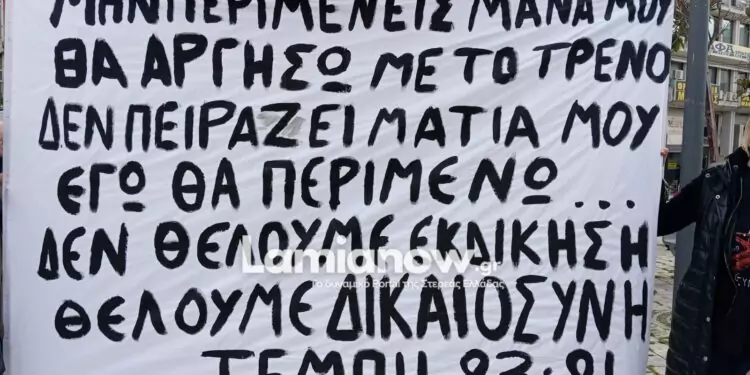 ΜΗΝ ΠΕΡΙΜΕΝΕΙΣ ΜΑΝΑ ΜΟΥ
ΘΑ ΑΡΓΗΣΩ ΜΕ ΤΟ ΤΡΕΝΟ
ΔΕΝ ΠΕΙΡΑΖΕΙ ΜΑΤΙΑ ΜΟΥ
ΕΓΩ ΘΑ ΠΕΡΙΜΕΝΩ...
ΔΕΝ ΘΕΛΟΥΜΕ ΕΚΔΙΚΗΣΗ
Lamianow.gr
Το δυναμικό Portal της Στερεάς Ελλάδας
ΘΕΛΟΥΜΕ ΔΙΚΑΙΟΣΥΝΗ